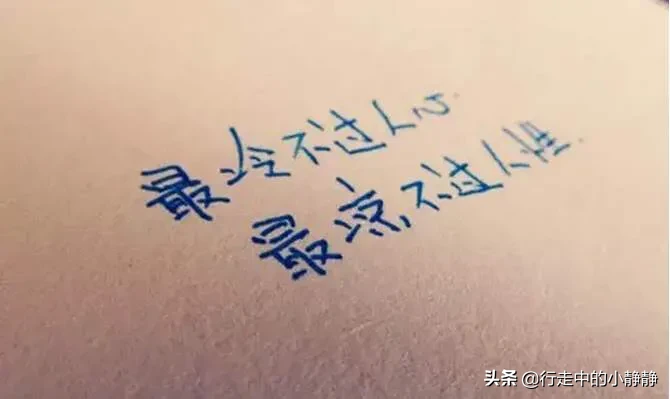 最冷不过人心.
最凉不过人性.
头条 @行走中的小静静